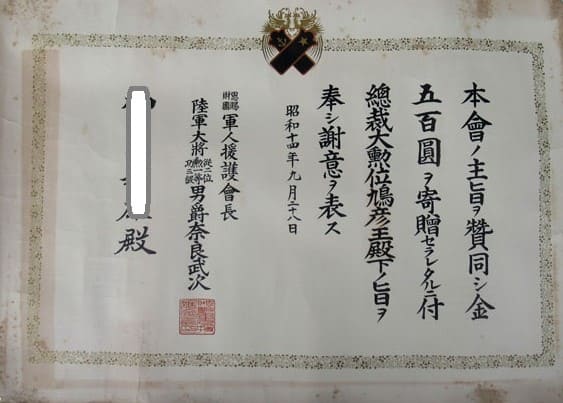 本會ノ主旨ヲ贊同シ金
五百圓ヲ寄贈セラレタルニ付
總裁大勲位鳩彦王殿下ノ旨ヲ
奉シ謝意ヲ表ス
昭和十四年九月二十八日
恩賜財團軍人援護會長
陸軍大將從二位勲一等功三級男爵奈良武次
殿